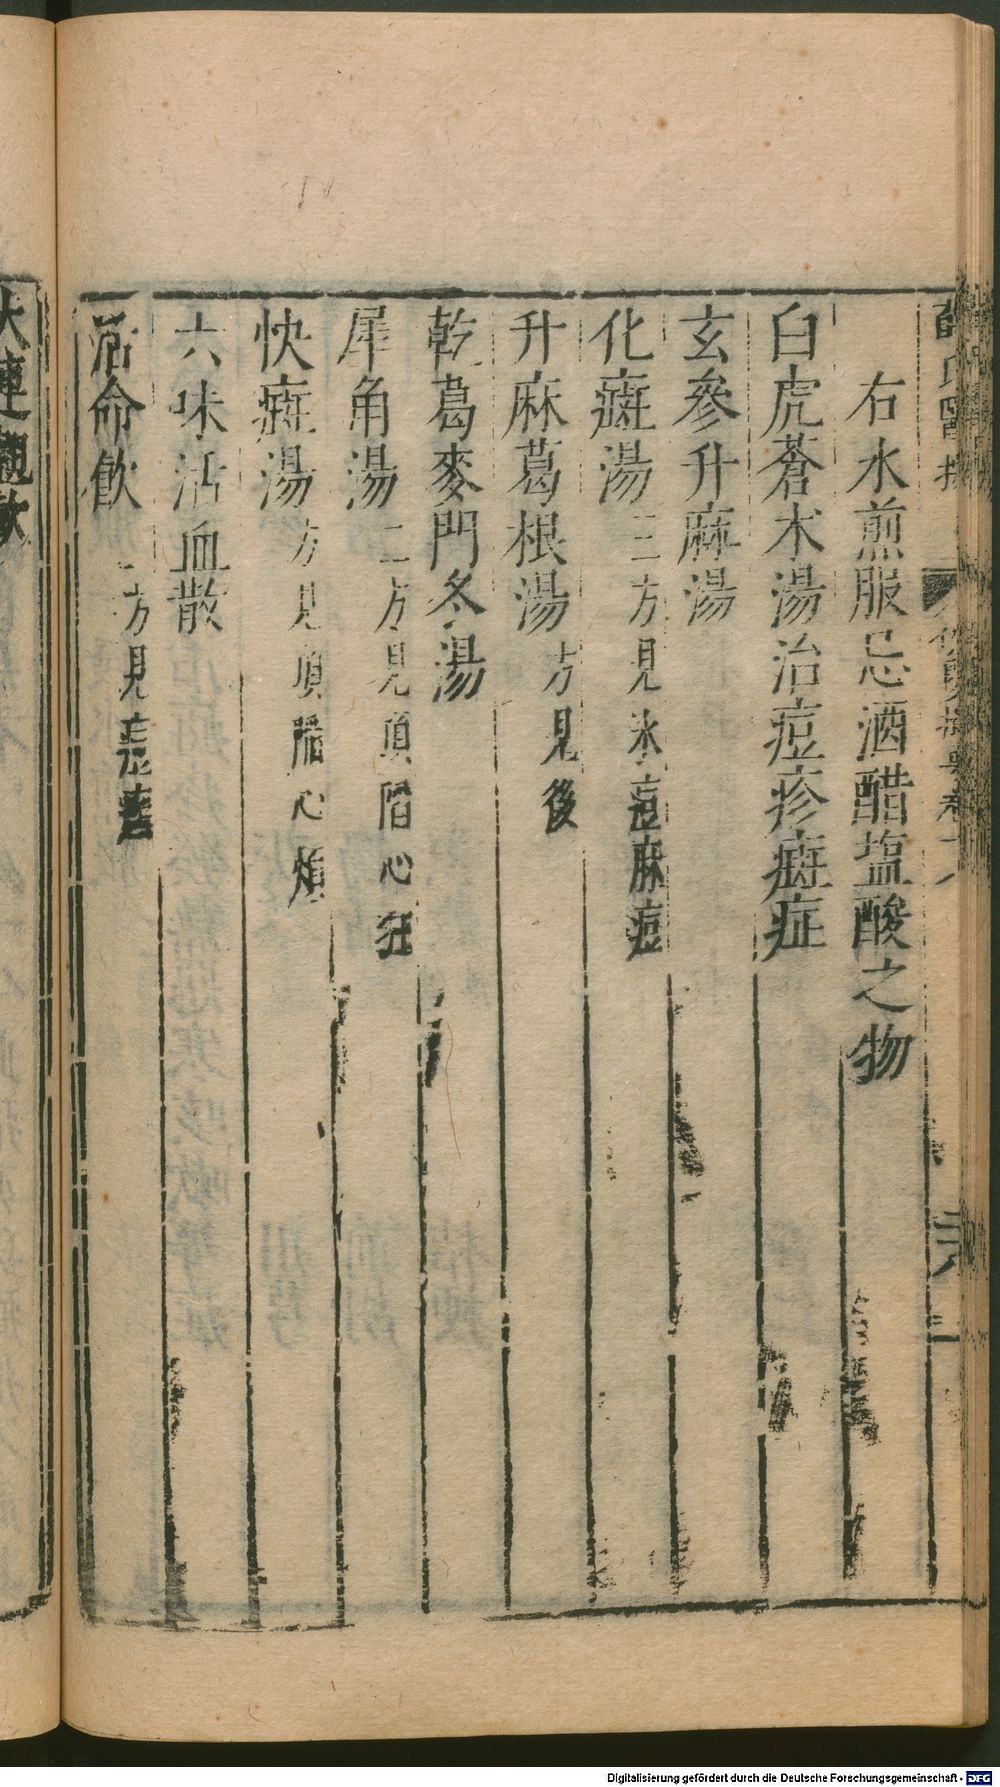 右水煎服忌酒醋塩酸之物
白虎蒼术湯治痘疹癍症
玄參升麻湯
化癍湯 三方見水痘麻痘
升麻葛根湯 方見後
乾葛麥門冬湯
犀角湯 二方見頂陷心狂
快癍湯 方見頂陷心煩
六味活血散
活命飲 二方見
大連翹飲
Digitalisierung gefördert durch die Deutsche Forschungsgemeinschaft - DFG